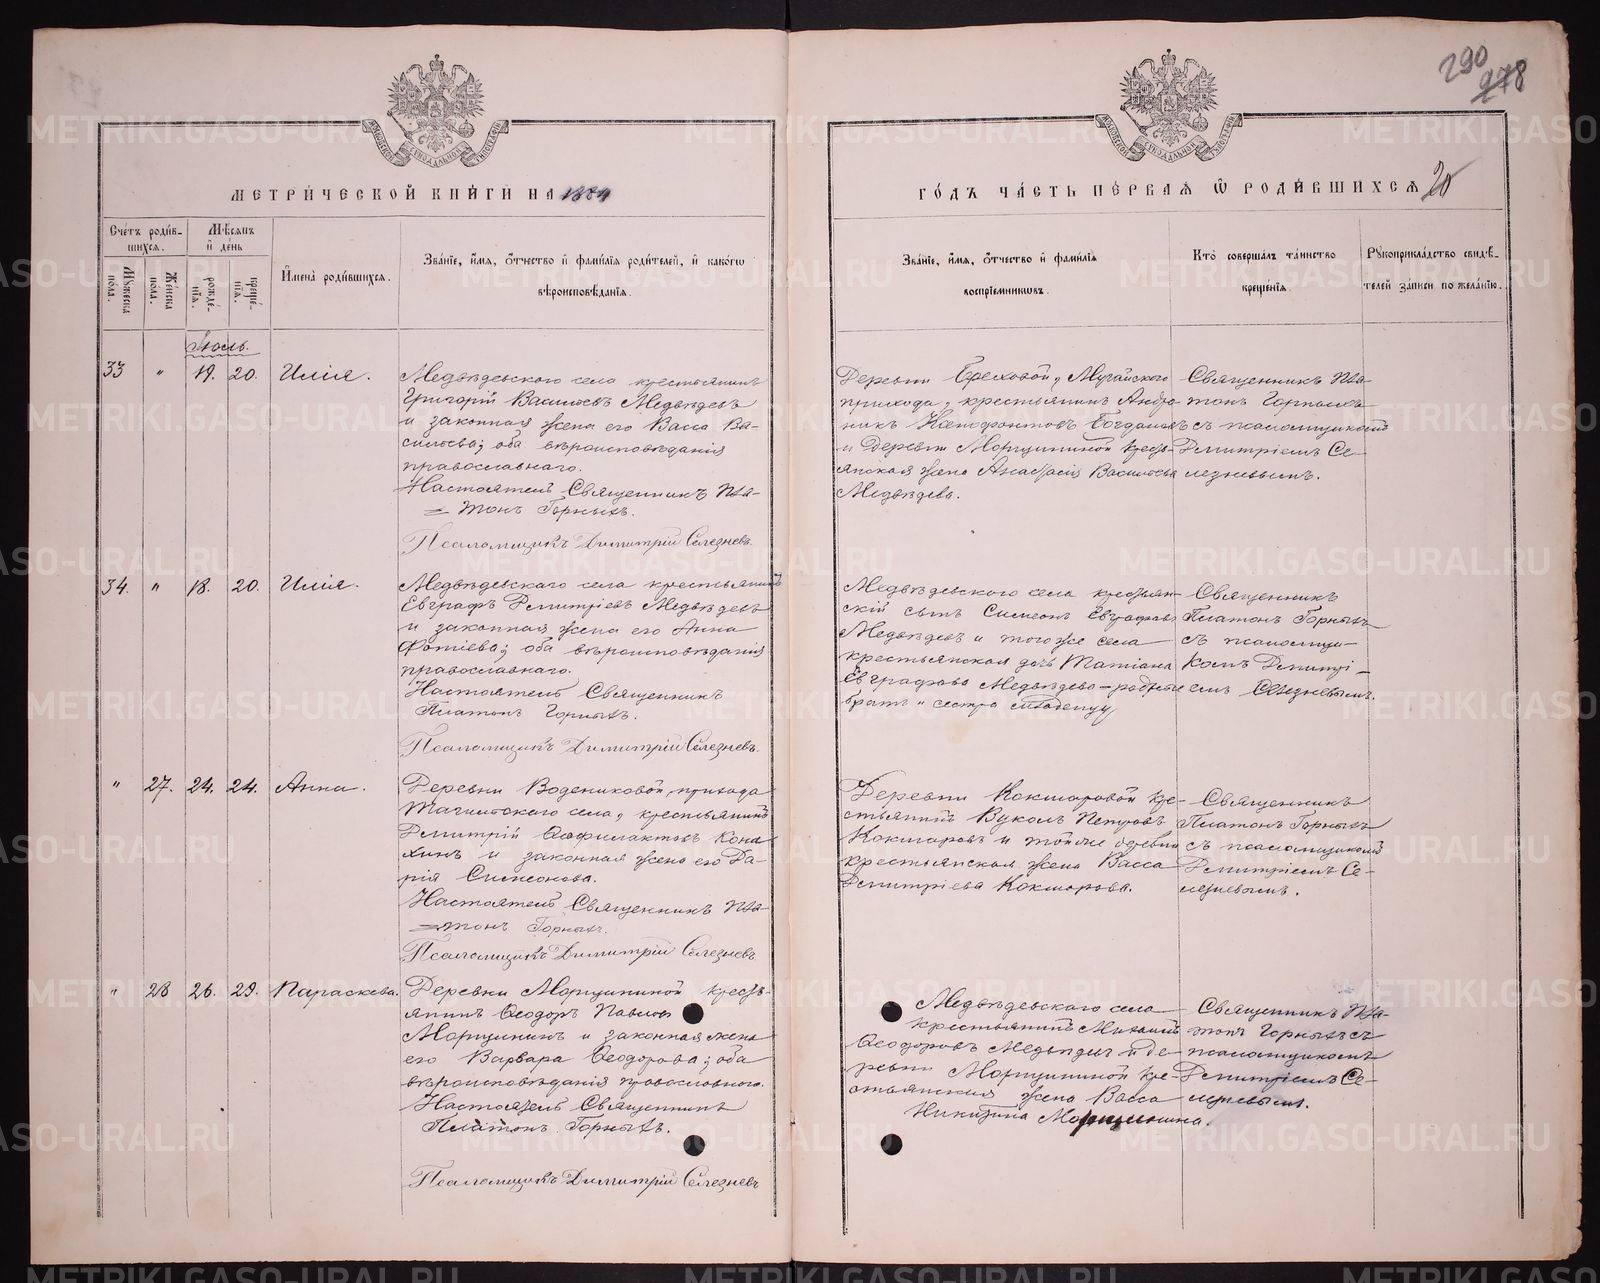 290
278
МЕТРИ́ЧЕСКОЙ КНИ́ГИ НА 1884
ГО́ДЪ ЧА́СТЬ ПЕ́РВАЯ Ѿ РОДИ́ВШИХСЯ 20
Сче́тъ роди́в-
шихся.
Мѣ́сяцъ
и҆ де́нь
Мꙋ́жеска по́ла.
Же́нска по́ла.
рожде́-
нїя.
креще́-
нїя.
И҆мена̀ роди́вшихся.
Зва́нїе, и҆́мя, ѻ҆́тчество и҆ фами́лїя роди́телей, и҆ како́гѡ
вѣроисповѣ́данїя.
Зва́нїе, и҆́мя, ѻ҆́тчество и҆ фами́лїя
воспрїе́мниковъ.
Кто̀ соверша́лъ та́инство
креще́нїя.
Рꙋкоприкла́дство свидѣ́-
телей за́писи по жела́нїю.
Іюль.
33 " 19. 20. Илія.
Медвѣдевскаго села крестьянинъ
Григорій Васильевъ Медвѣдевъ
и законная жена его Васса Ва-
сильева; оба вѣроисповѣданія
православнаго.
Настоятель Священникъ Пла-
= тонъ Горныхъ.
Псаломщикъ Димитрій Селезневъ.
Деревни Бреховой, Мугайскаго
прихода, крестьянинъ Андро-
никъ Ксенофонтовъ Богдановъ
и деревни Морщининой кресть-
янская жена Анастасія Васильева
Медвѣдева.
Священникъ Пла-
тонъ Горныхъ
съ псаломщикомъ
Димитріемъ Се-
лезневымъ.
34. " 18. 20. Илія.
Медвѣдевскаго села крестьянинъ
Евграфъ Димитріевъ Медвѣдевъ
и законная жена его Анна
Фотіева; оба вѣроисповѣданія
православнаго.
Настоятель Священникъ
Платонъ Горныхъ.
Псаломщикъ Димитрій Селезневъ.
Медвѣдевскаго села крестьян-
скій сынъ Симеонъ Евграфовъ
Медвѣдевъ и того же села
крестьянская дочь Татіана
Евграфова Медвѣдева – родные
братъ и сестра младенцу
Священникъ
Платонъ Горныхъ
съ псаломщи-
комъ Димитрі-
емъ Селезневымъ.
" 27. 24. 24. Анна.
Деревни Водениковой, прихода
Магнитскаго села, крестьянинъ
Димитрій Ѳеофилактовъ Кона-
хинъ и законная жена его Да-
рія Симеонова.
Настоятель Священникъ Пла-
= тонъ Горныхъ.
Псаломщикъ Димитрій Селезневъ.
Деревни Кокшаровой кре-
стьянинъ Вуколъ Петровъ
Кокшаровъ и той же деревни
крестьянская жена Васса
Димитріева Кокшарова.
Священникъ
Платонъ Горныхъ
съ псаломщикомъ
Димитріемъ Се-
лезневымъ.
" 28 26. 29. Параскева.
Деревни Морщининой кресть-
янинъ Ѳеодоръ Павловъ
Морщининъ и законная жена
его Варвара Ѳеодорова; оба
вѣроисповѣданія православнаго.
Настоятель Священникъ
Платонъ Горныхъ.
Псаломщикъ Димитрій Селезневъ
Медвѣдевскаго села
крестьянинъ Михаилъ
Ѳеодоровъ Медвѣдевъ и де-
ревни Морщининой кре-
стьянская жена Васса
Никитина Морщинина.
Священникъ Пла-
тонъ Горныхъ съ
псаломщикомъ
Димитріемъ Се-
лезневымъ.
METRIKI.GASO-URAL.RU